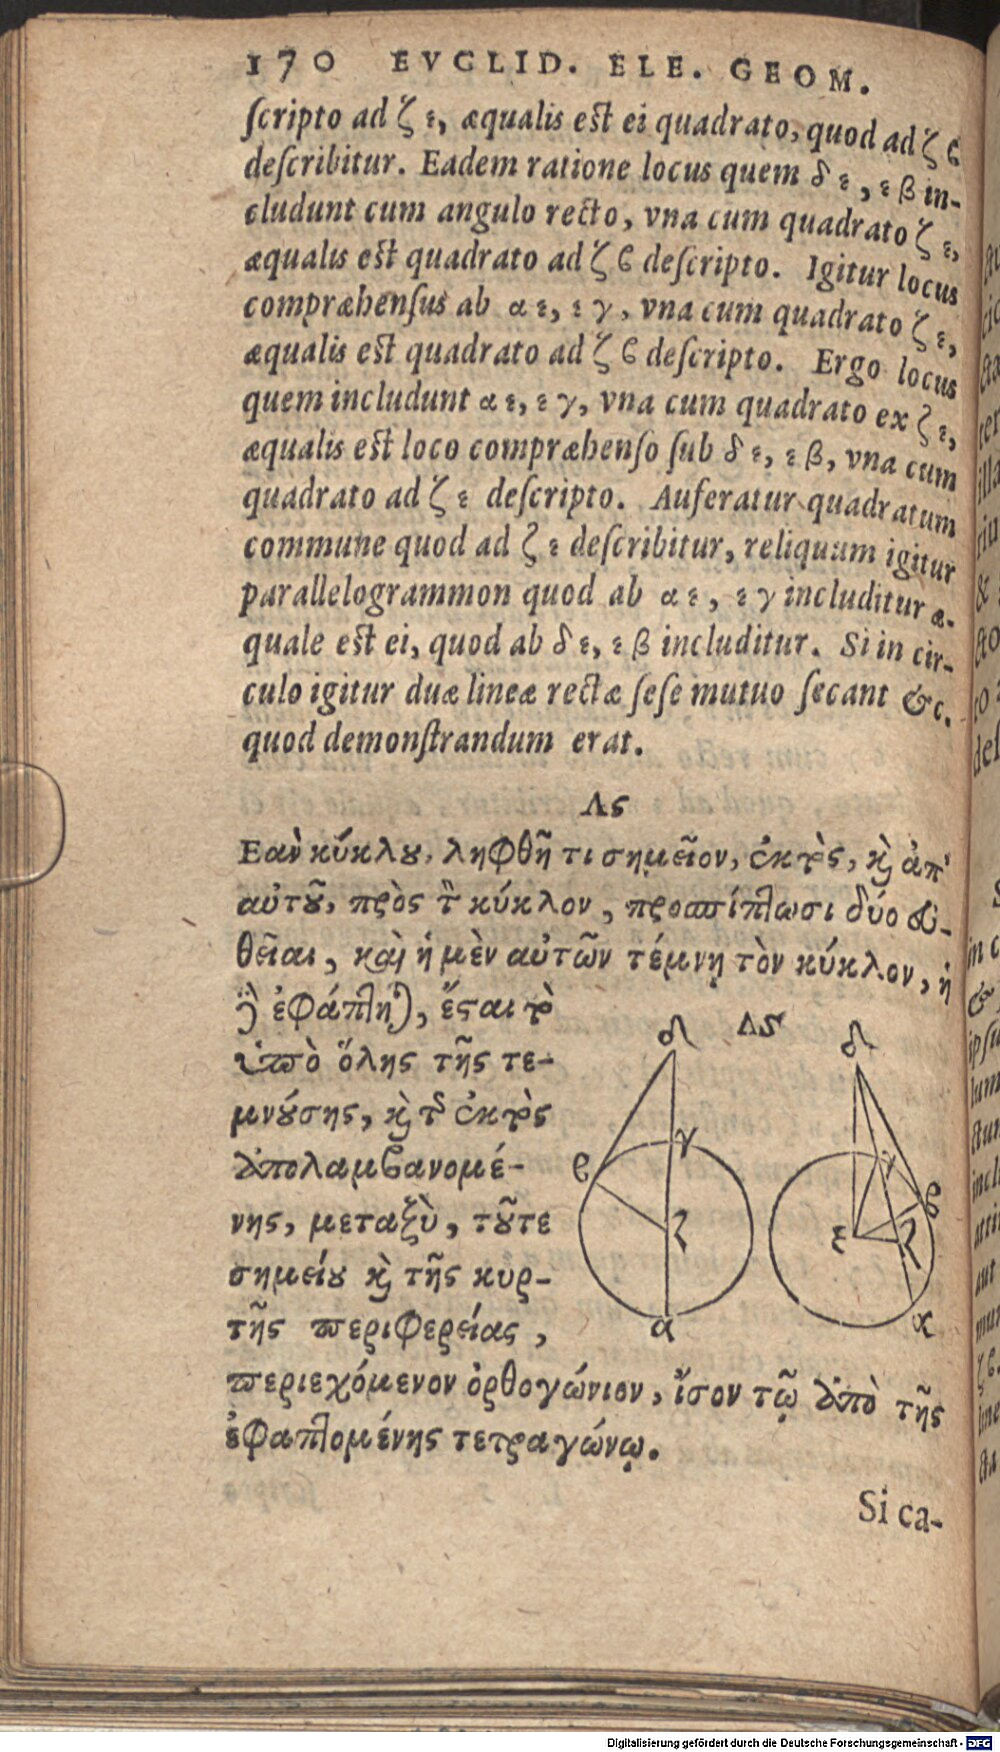 170 EVCLID. ELE. GEOM.
ſcripto ad ζ ε, æqualis eſt ei quadrato, quod ad ζ ϐ
deſcribitur. Eadem ratione locus quem δ ε, ε β in-
cludunt cum angulo recto, vna cum quadrato ζ ε,
æqualis eſt quadrato ad ζ ϐ deſcripto. Igitur locus
compræhenſus ab α ε, ε γ, vna cum quadrato ζ ε,
æqualis eſt quadrato ad ζ ϐ deſcripto. Ergo locus
quem includunt α ε, ε γ, vna cum quadrato ex ζ ε,
æqualis eſt loco compræhenſo ſub δ ε, ε β, vna cum
quadrato ad ζ ε deſcripto. Auferatur quadratum
commune quod ad ζ ε deſcribitur, reliquum igitur
parallelogrammon quod ab α ε, ε γ includitur æ-
quale eſt ei, quod ab δ ε, ε β includitur. Si in cir-
culo igitur duæ lineæ rectæ ſeſe mutuo ſecant &c.
quod demonſtrandum erat.
Λς
Εαν̀ κύκλου, ληφθῆ τι σημεῖον, ἐκτὸς, καὶ ἀπ'
αὐτοῦ, πρὸς τὸν κύκλον, προσπίπτωσι δύο εὐ-
θεῖαι, καὶ ἡ μὲν αὐτῶν τέμνῃ τὸν κύκλον, ἡ
δὲ ἐφάπτηται, ἔσται τὸ
ὑπὸ ὅλης τῆς τε-
μνούσης, καὶ τῆς ἐκτὸς
ἀπολαμϐανομέ-
νης, μεταξὺ, τοῦτε
σημείου καὶ τῆς κυρ-
τῆς περιφερείας,
περιεχόμενον ὀρθογώνιον, ἴσον τῷ ἀπὸ τῆς
ἐφαπτομένης τετραγώνῳ.
ΛΣ
δ
γ
ϐ
ζ
α
δ
γ
ϐ
ε
ζ
α
Si ca-
Digitalisierung gefördert durch die Deutsche Forschungsgemeinschaft - DFG